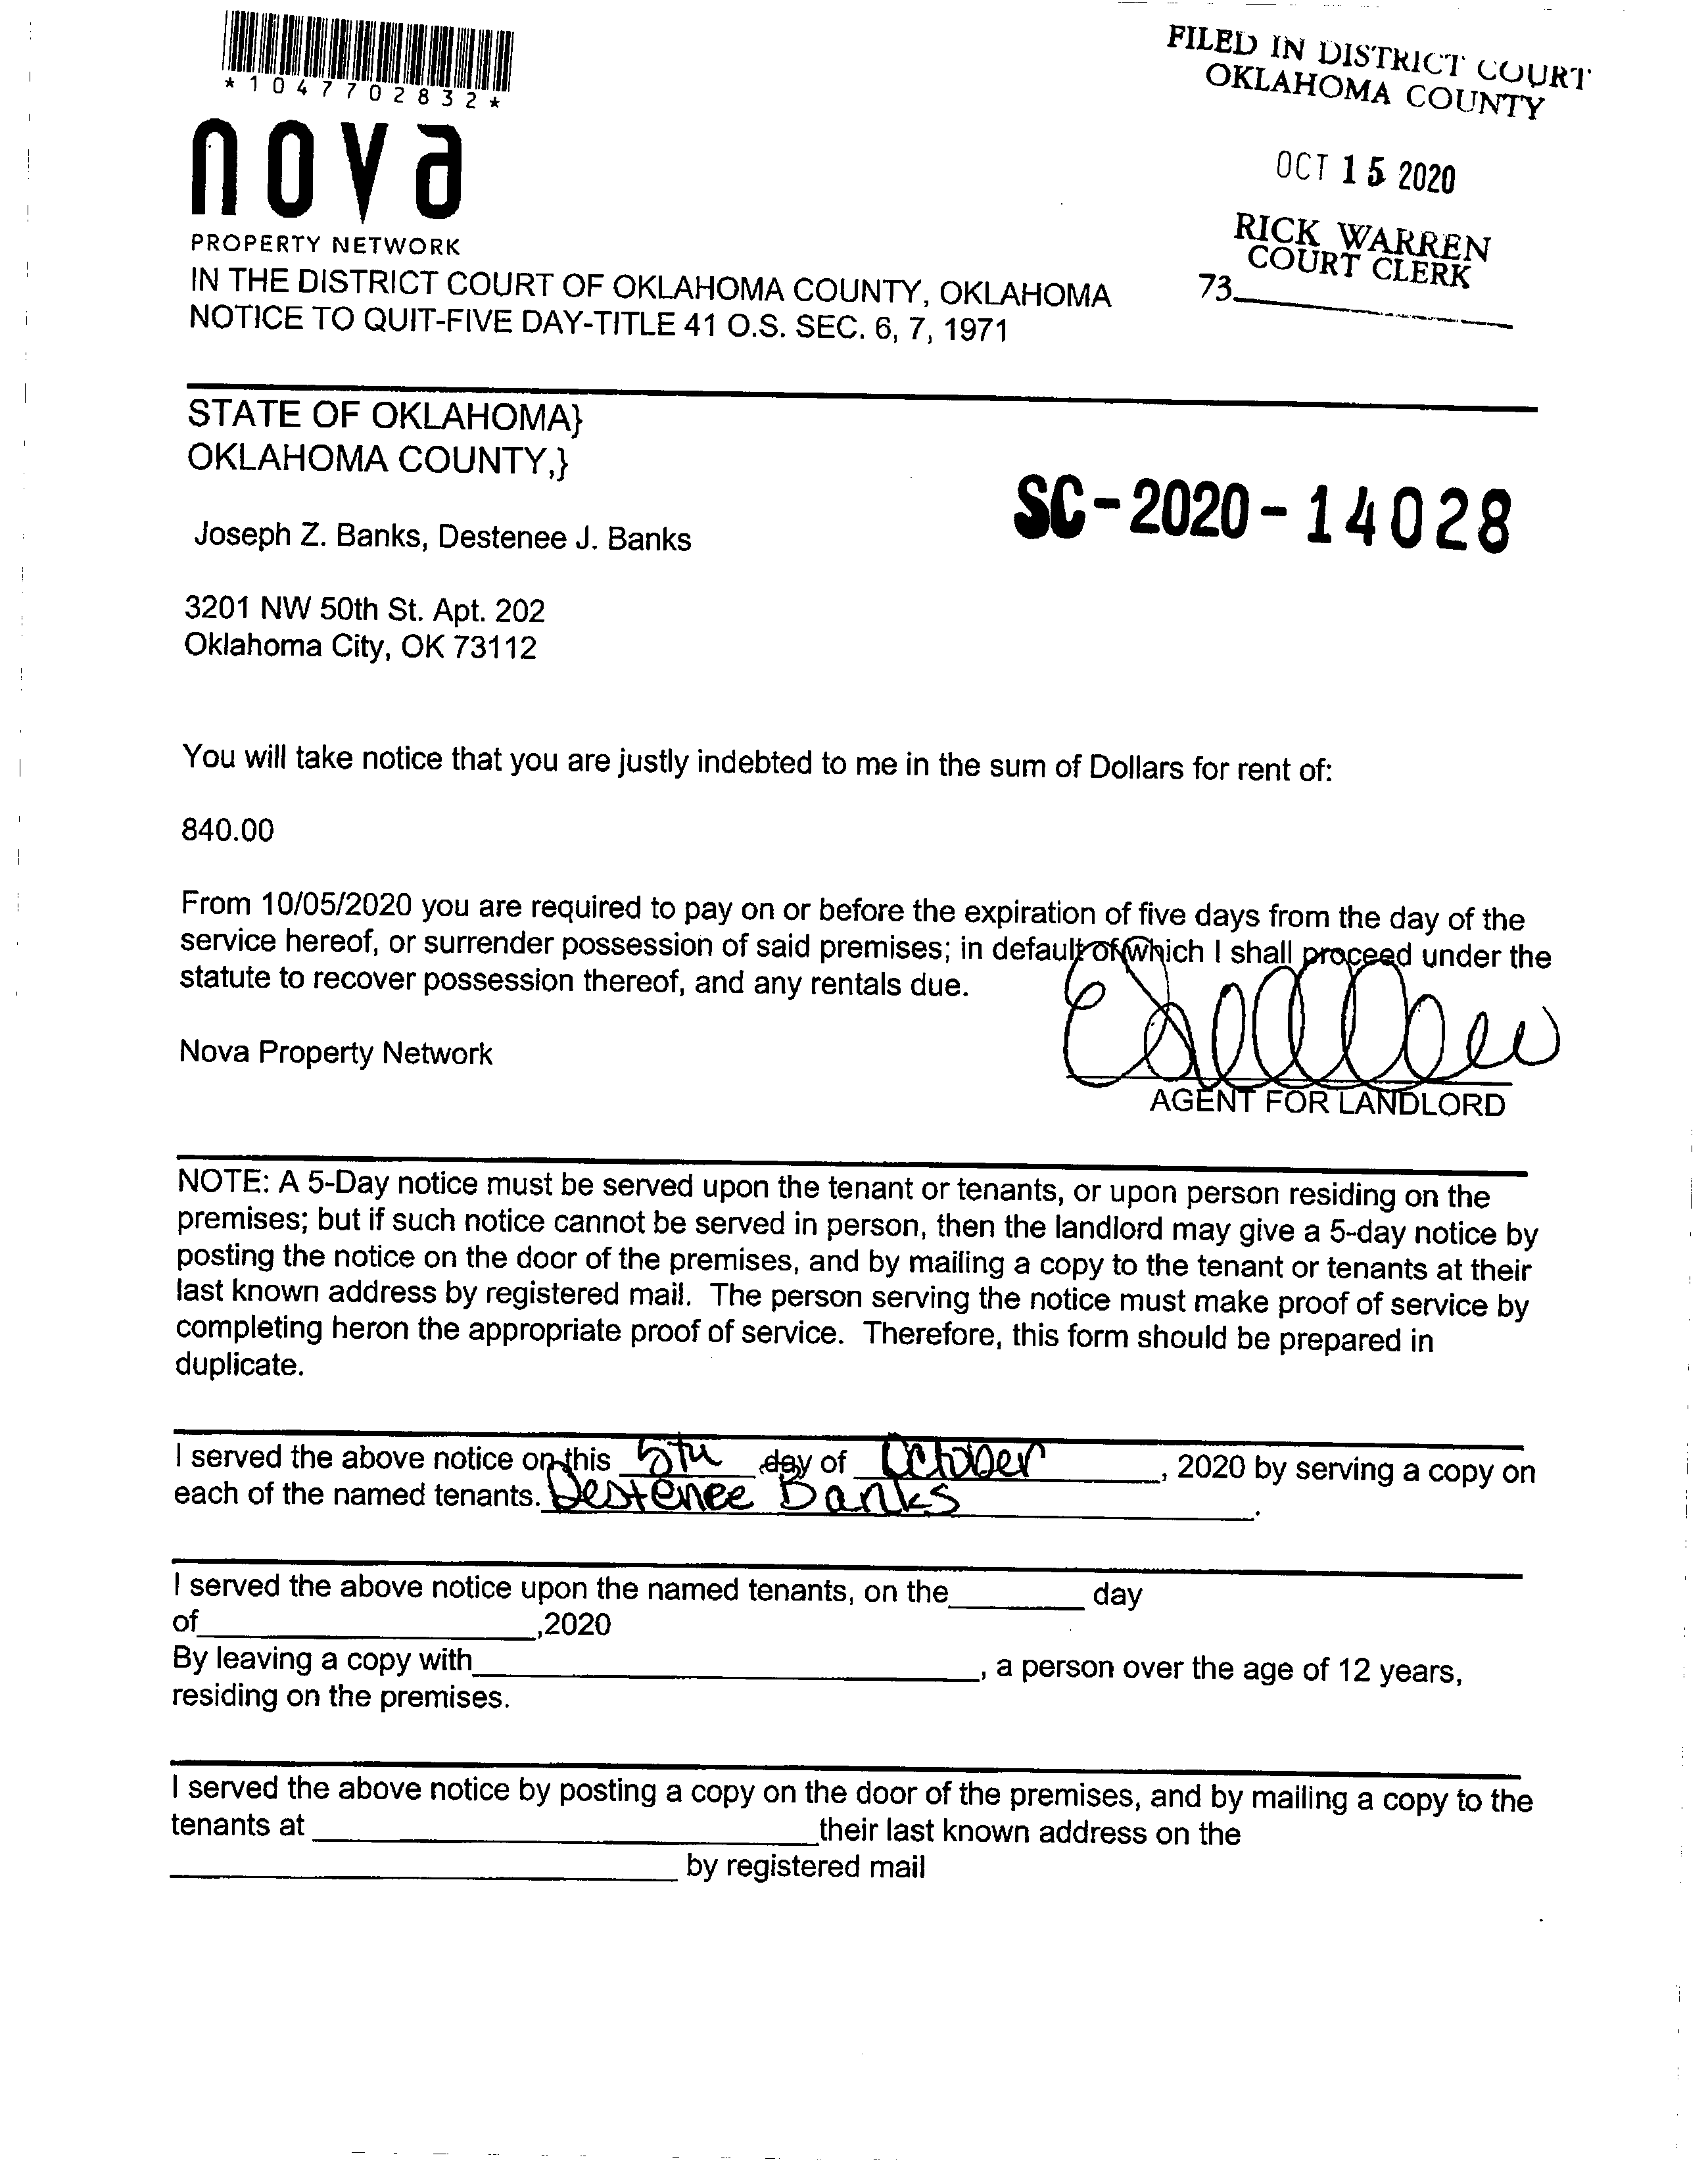 *1047702832*
nova
PROPERTY NETWORK
FILED IN DISTRICT COURT
OKLAHOMA COUNTY
OCT 15 2020
RICK WARREN
COURT CLERK
73
IN THE DISTRICT COURT OF OKLAHOMA COUNTY, OKLAHOMA
NOTICE TO QUIT-FIVE DAY-TITLE 41 O.S. SEC. 6, 7, 1971
STATE OF OKLAHOMA}
OKLAHOMA COUNTY,}
SC-2020-14028
Joseph Z. Banks, Destenee J. Banks
3201 NW 50th St. Apt. 202
Oklahoma City, OK 73112
You will take notice that you are justly indebted to me in the sum of Dollars for rent of:
840.00
From 10/05/2020 you are required to pay on or before the expiration of five days from the day of the
service hereof, or surrender possession of said premises; in default of which I shall proceed under the
statute to recover possession thereof, and any rentals due.
Nova Property Network
AGENT FOR LANDLORD
NOTE: A 5-Day notice must be served upon the tenant or tenants, or upon person residing on the
premises; but if such notice cannot be served in person, then the landlord may give a 5-day notice by
posting the notice on the door of the premises, and by mailing a copy to the tenant or tenants at their
last known address by registered mail. The person serving the notice must make proof of service by
completing heron the appropriate proof of service. Therefore, this form should be prepared in
duplicate.
I served the above notice on this 5th day of October, 2020 by serving a copy on
each of the named tenants. Destenee Banks.
I served the above notice upon the named tenants, on the________ day
of____________________,2020
By leaving a copy with______________________________, a person over the age of 12 years,
residing on the premises.
I served the above notice by posting a copy on the door of the premises, and by mailing a copy to the
tenants at ______________________________their last known address on the
______________________________ by registered mail